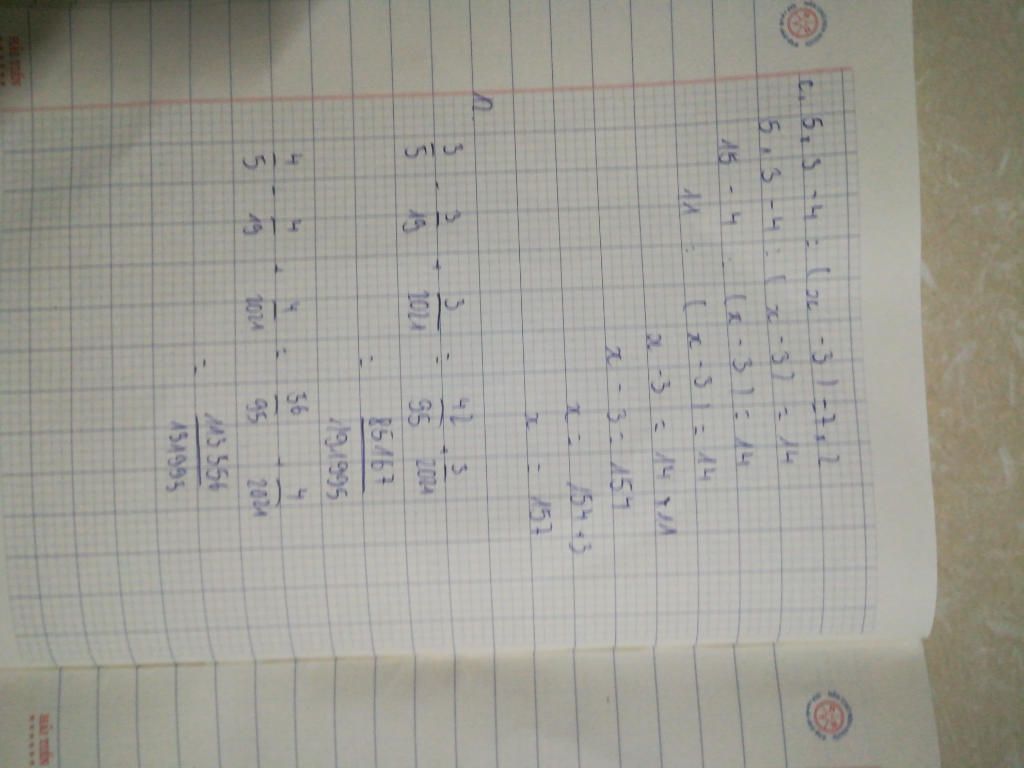 c, 5 x 3 - 4 : ( x - 3 ) = 7 x 2
5 x 3 - 4 : ( x - 3 ) = 14
15 - 4 : ( x - 3 ) = 14
11 : ( x - 3 ) = 14
x - 3 = 14 x 11
x - 3 = 154
x = 154 + 3
x = 157
12.
3/5 - 3/19 + 3/2021 = 42/95 + 3/2021
= 85167/191995
4/5 - 4/19 + 4/2021 = 56/95 + 4/2021
= 113556/191995